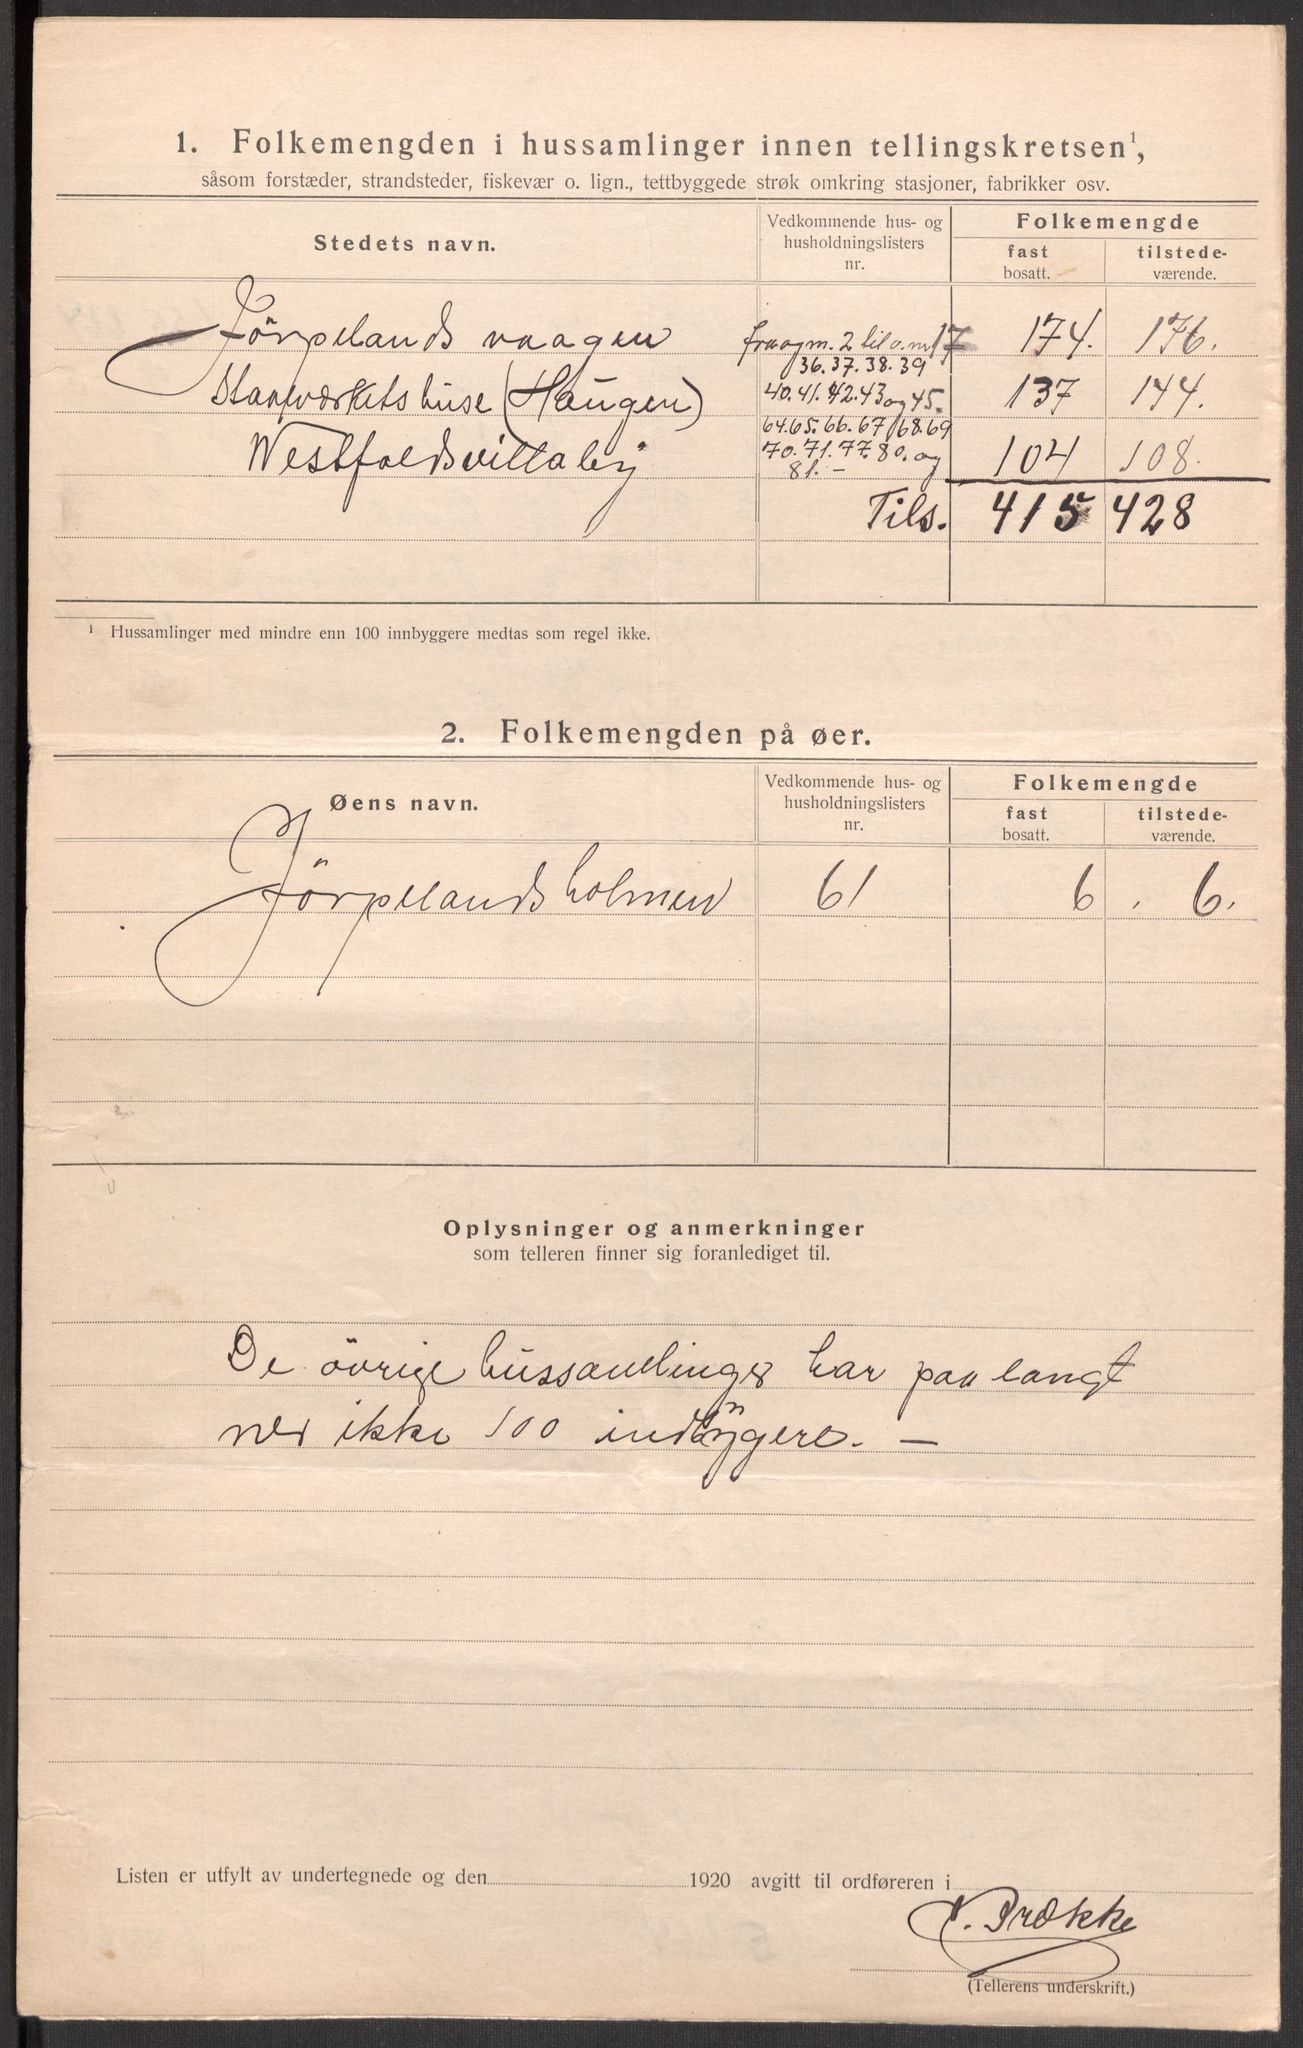 1. Folkemengden i hussamlinger innen tellingskretsen¹,
såsom forstæder, strandsteder, fiskevær o. lign., tettbyggede strøk omkring stasjoner, fabrikker osv.
Stedets navn.
Vedkommende hus- og
husholdningslisters
nr.
Folkemengde
fast
bosatt.
tilstede-
værende.
Jörpelands vaagen fra og m. 2 til o. m 17 174. 176.
36. 37. 38. 39
Staalværkets huse (Haugen) 40. 41. 42. 43 og 45. 137 144.
64. 65. 66. 67 68. 69
Westfoldsvillaby 70. 71. 77. 80. og 104 108.
81. –
Tils. 415 428
¹ Hussamlinger med mindre enn 100 innbyggere medtas som regel ikke.
2. Folkemengden på øer.
Øens navn.
Vedkommende hus- og
husholdningslisters
nr.
Folkemengde
fast
bosatt.
tilstede-
værende.
Jörpelandsholmen 61 6. 6.
Oplysninger og anmerkninger
som telleren finner sig foranlediget til.
De övrige hussamlinger har paa langt
nær ikke 100 indbyggere. –
Listen er utfylt av undertegnede og den 1920 avgitt til ordføreren i
Prække
(Tellerens underskrift.)